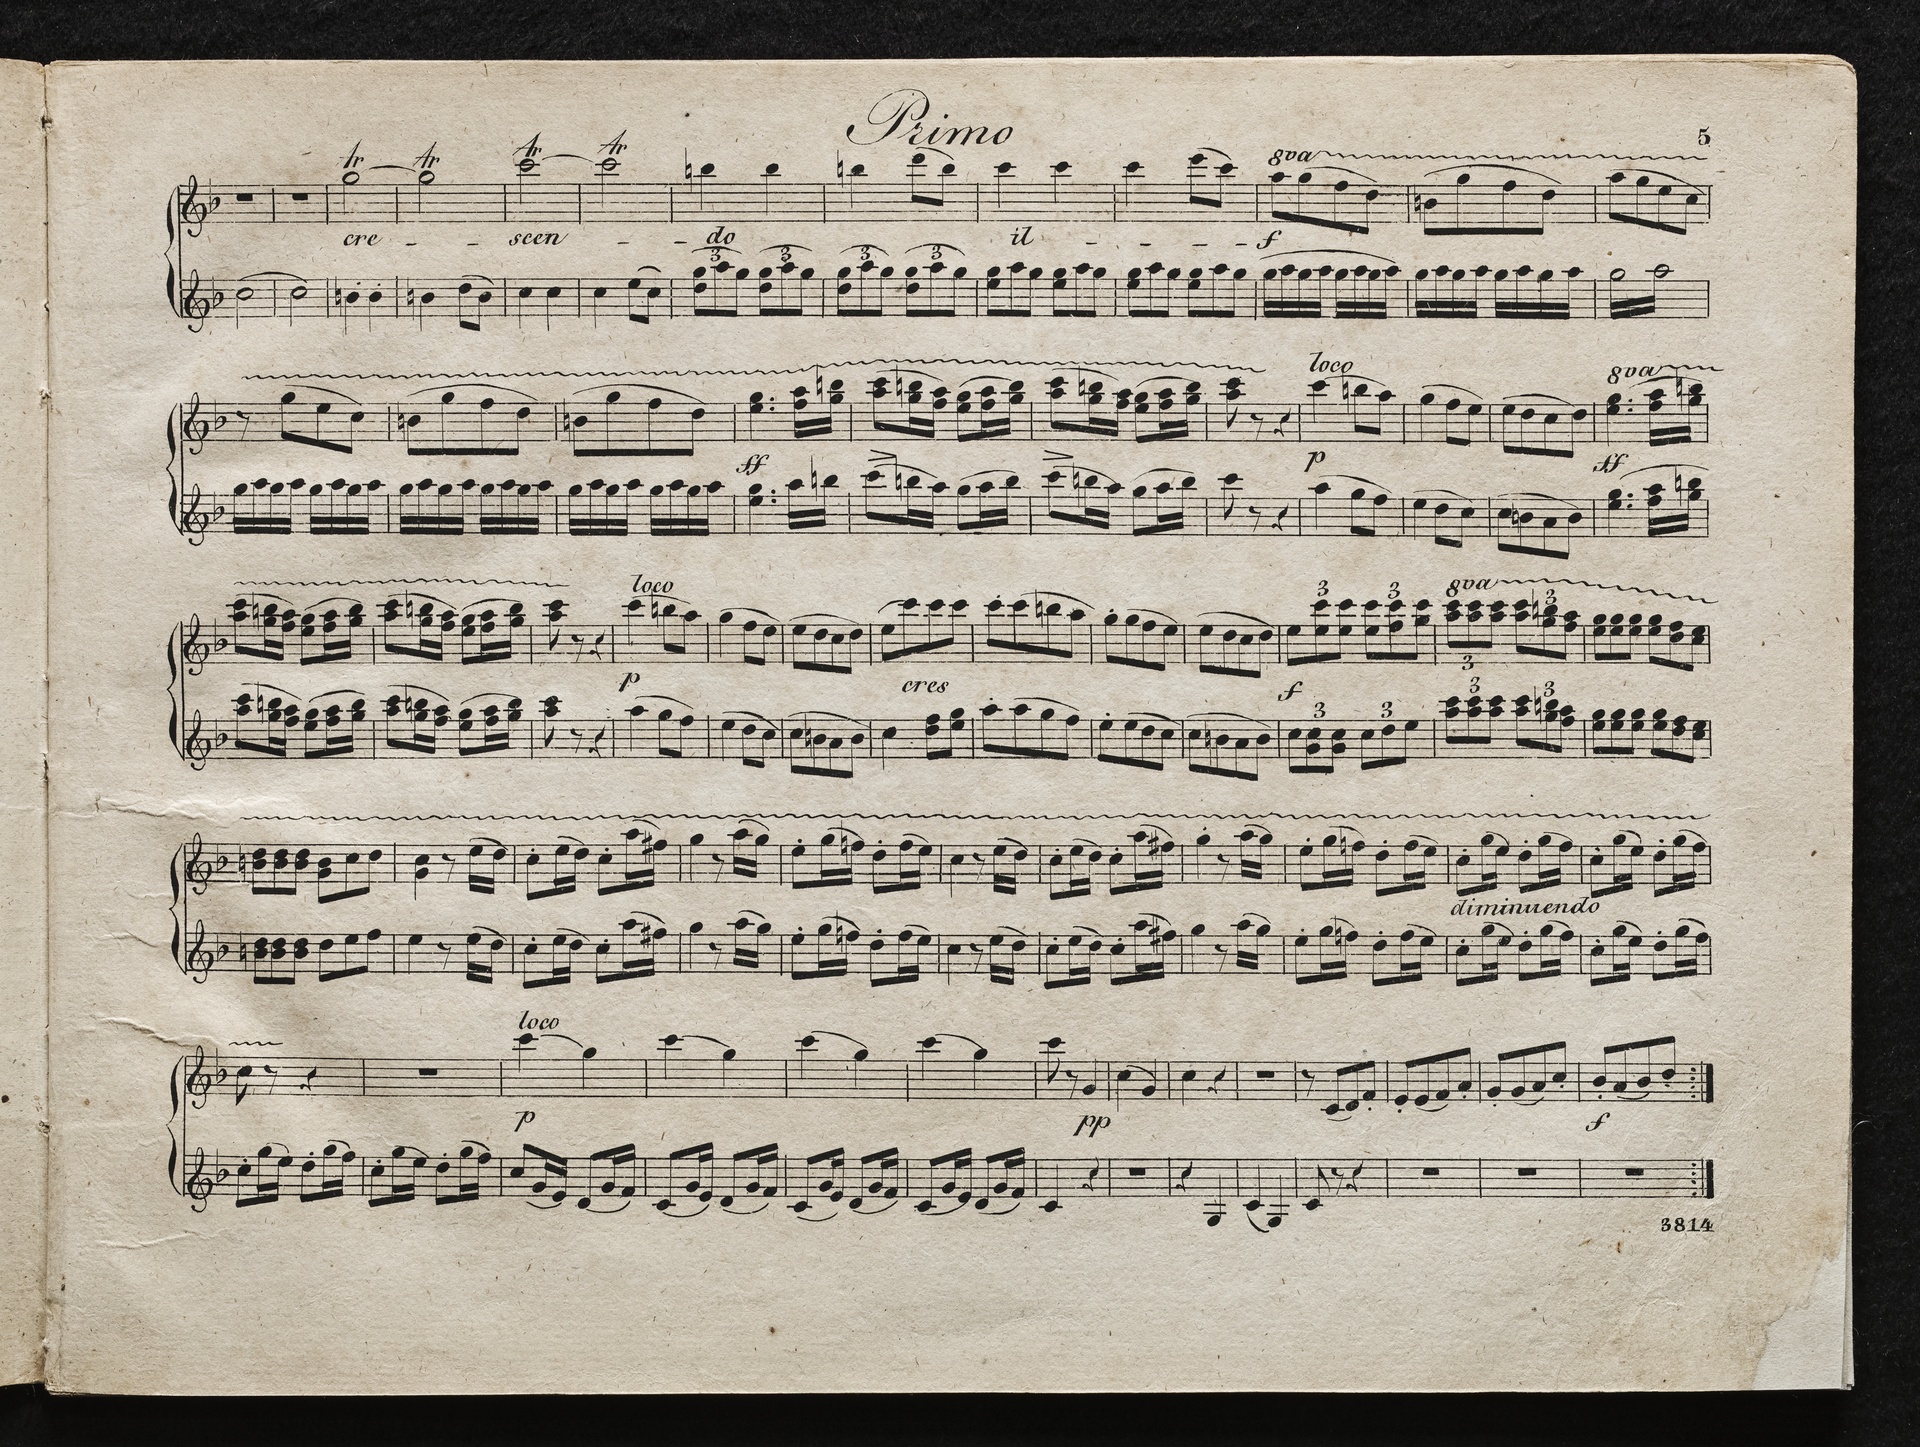 Primo
5
tr tr tr tr 8va
cre - - scen - - do il - - - - f
3 3 3 3
loco 8va
ff p ff
loco 3 3 8va 3
3
p cres f
3 3 3 3
diminuendo
loco
p pp f
3814